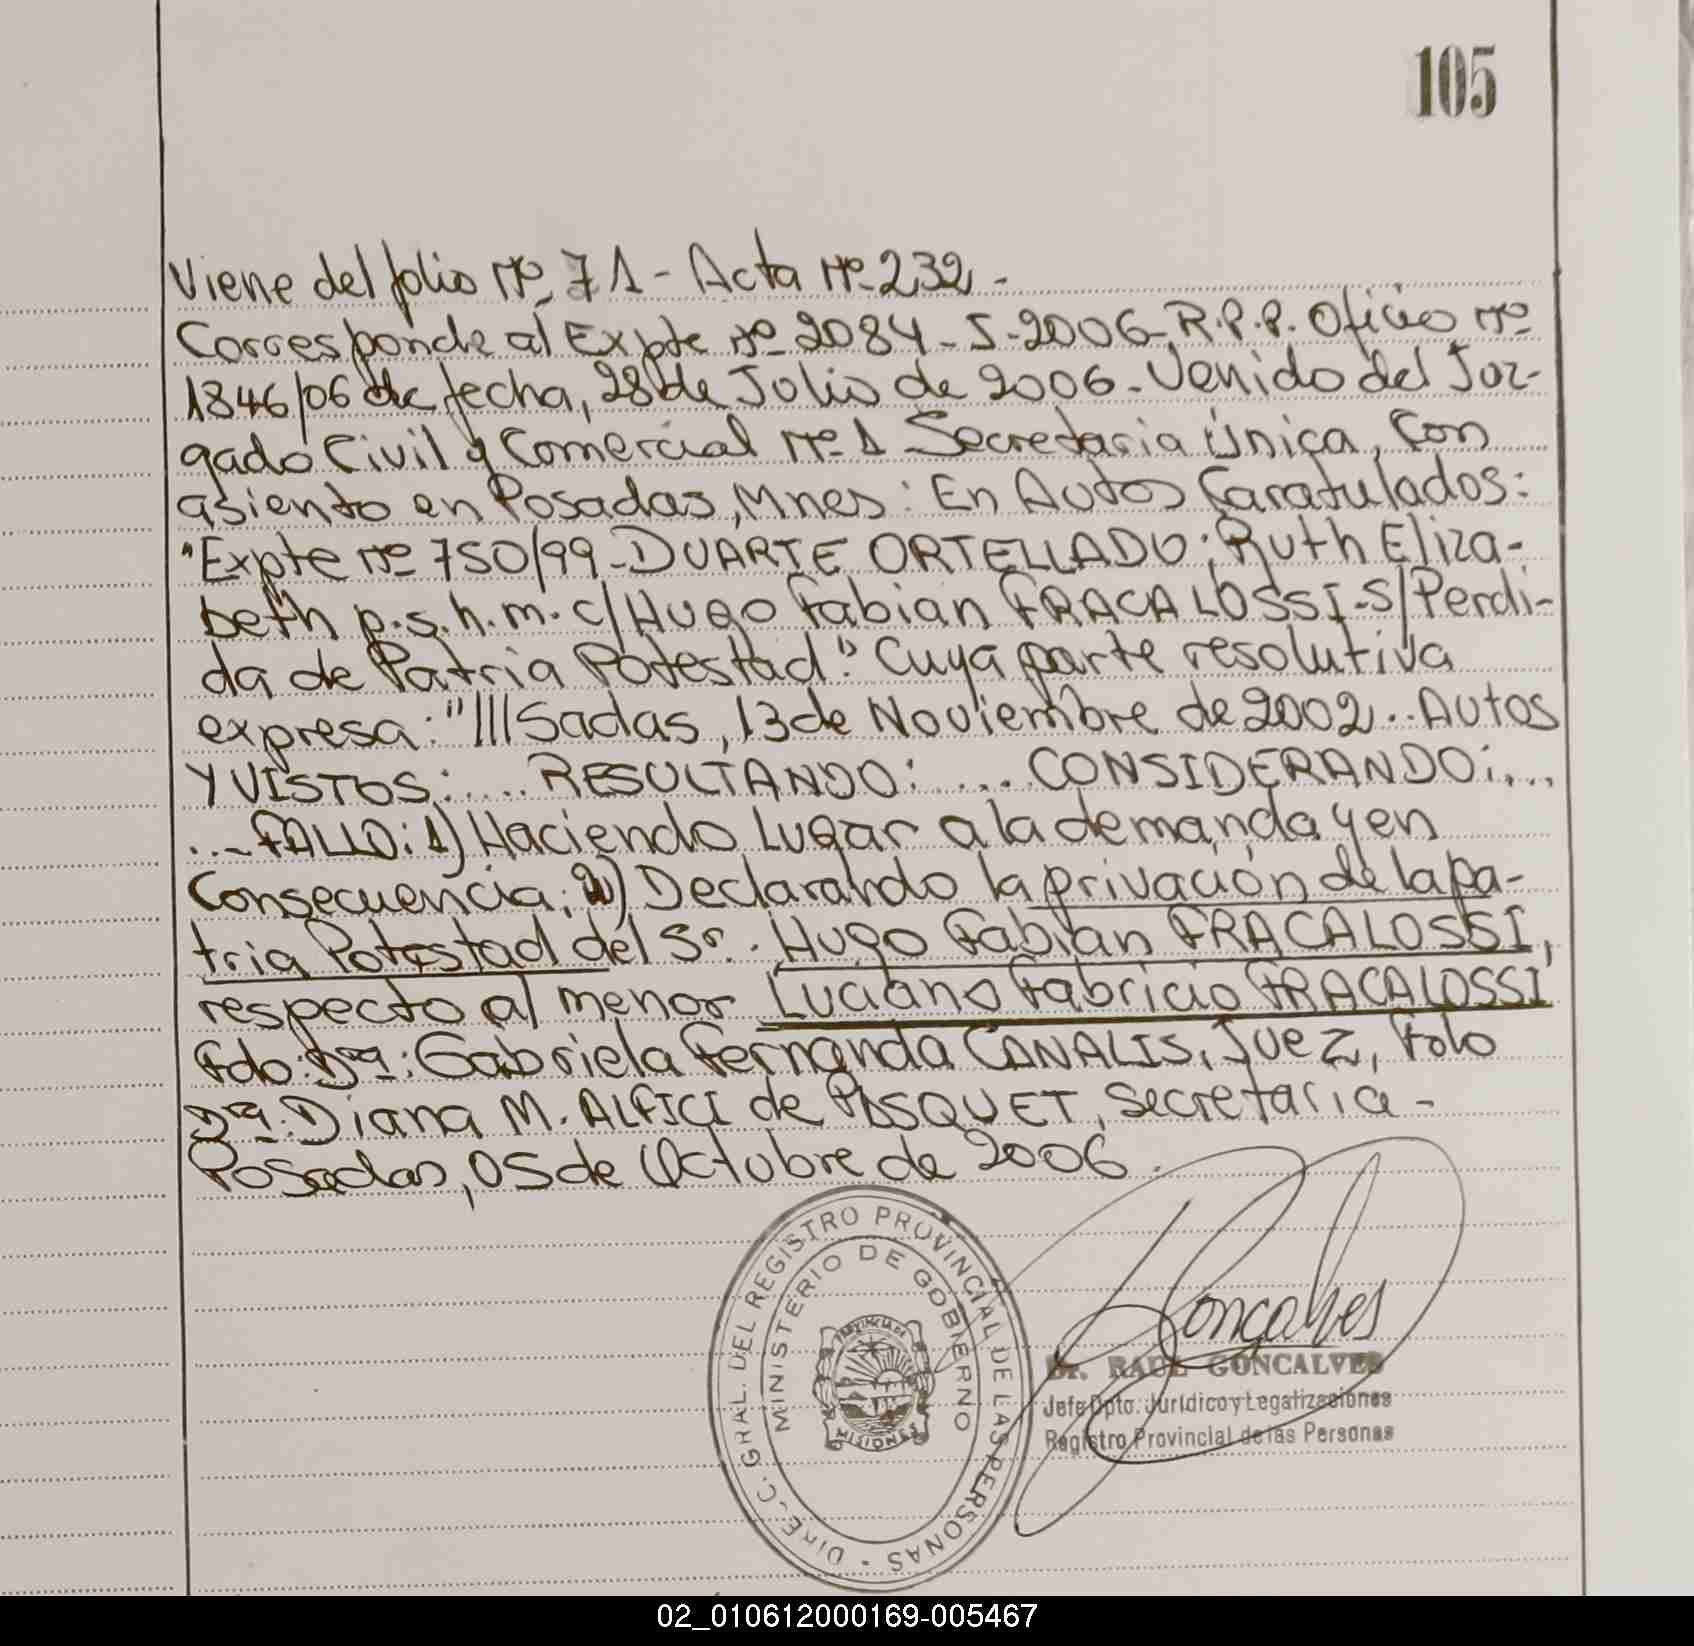 105
Viene del folio Nº 71 - Acta Nº 232 -
Corresponde al Expte Nº 2084 - S - 2006 - R.P.P. Oficio Nº
1846/06 de fecha, 28 de Julio de 2006 - Venido del Juz-
gado Civil y Comercial Nº 1 Secretaria Única, Con
asiento en Posadas, Mnes: En Autos Caratulados:
"Expte Nº 750/99 - DUARTE ORTELLADO; Ruth Eliza-
beth p.s.h.m. c/ Hugo Fabian FRACALOSSI - S/ Perdi-
da de Patria Potestad". Cuya parte resolutiva
expresa: "///Sadas, 13 de Noviembre de 2002.. Autos
Y VISTOS: .... RESULTANDO: .... CONSIDERANDO: ....
...- FALLO: 1) Haciendo Lugar a la demanda y en
Consecuencia; 2) Declarando la privación de la pa-
tria Potestad del Sr. Hugo Fabian FRACALOSSI,
respecto al menor Luciano Fabricio FRACALOSSI
Fdo: Drª: Gabriela Fernanda CANALIS, Juez, Fdo
Drª. Diana M. ALFICI de POSQUET, Secretaria -
Posadas, 05 de Octubre de 2006.
DIREC. GRAL. DEL REGISTRO PROVINCIAL DE LAS PERSONAS
MINISTERIO DE GOBIERNO
PROVINCIA DE
MISIONES
Goncalves
Dr. RAUL GONCALVES
Jefe Dpto. Jurídico y Legalizaciones
Registro Provincial de las Personas
02_010612000169-005467